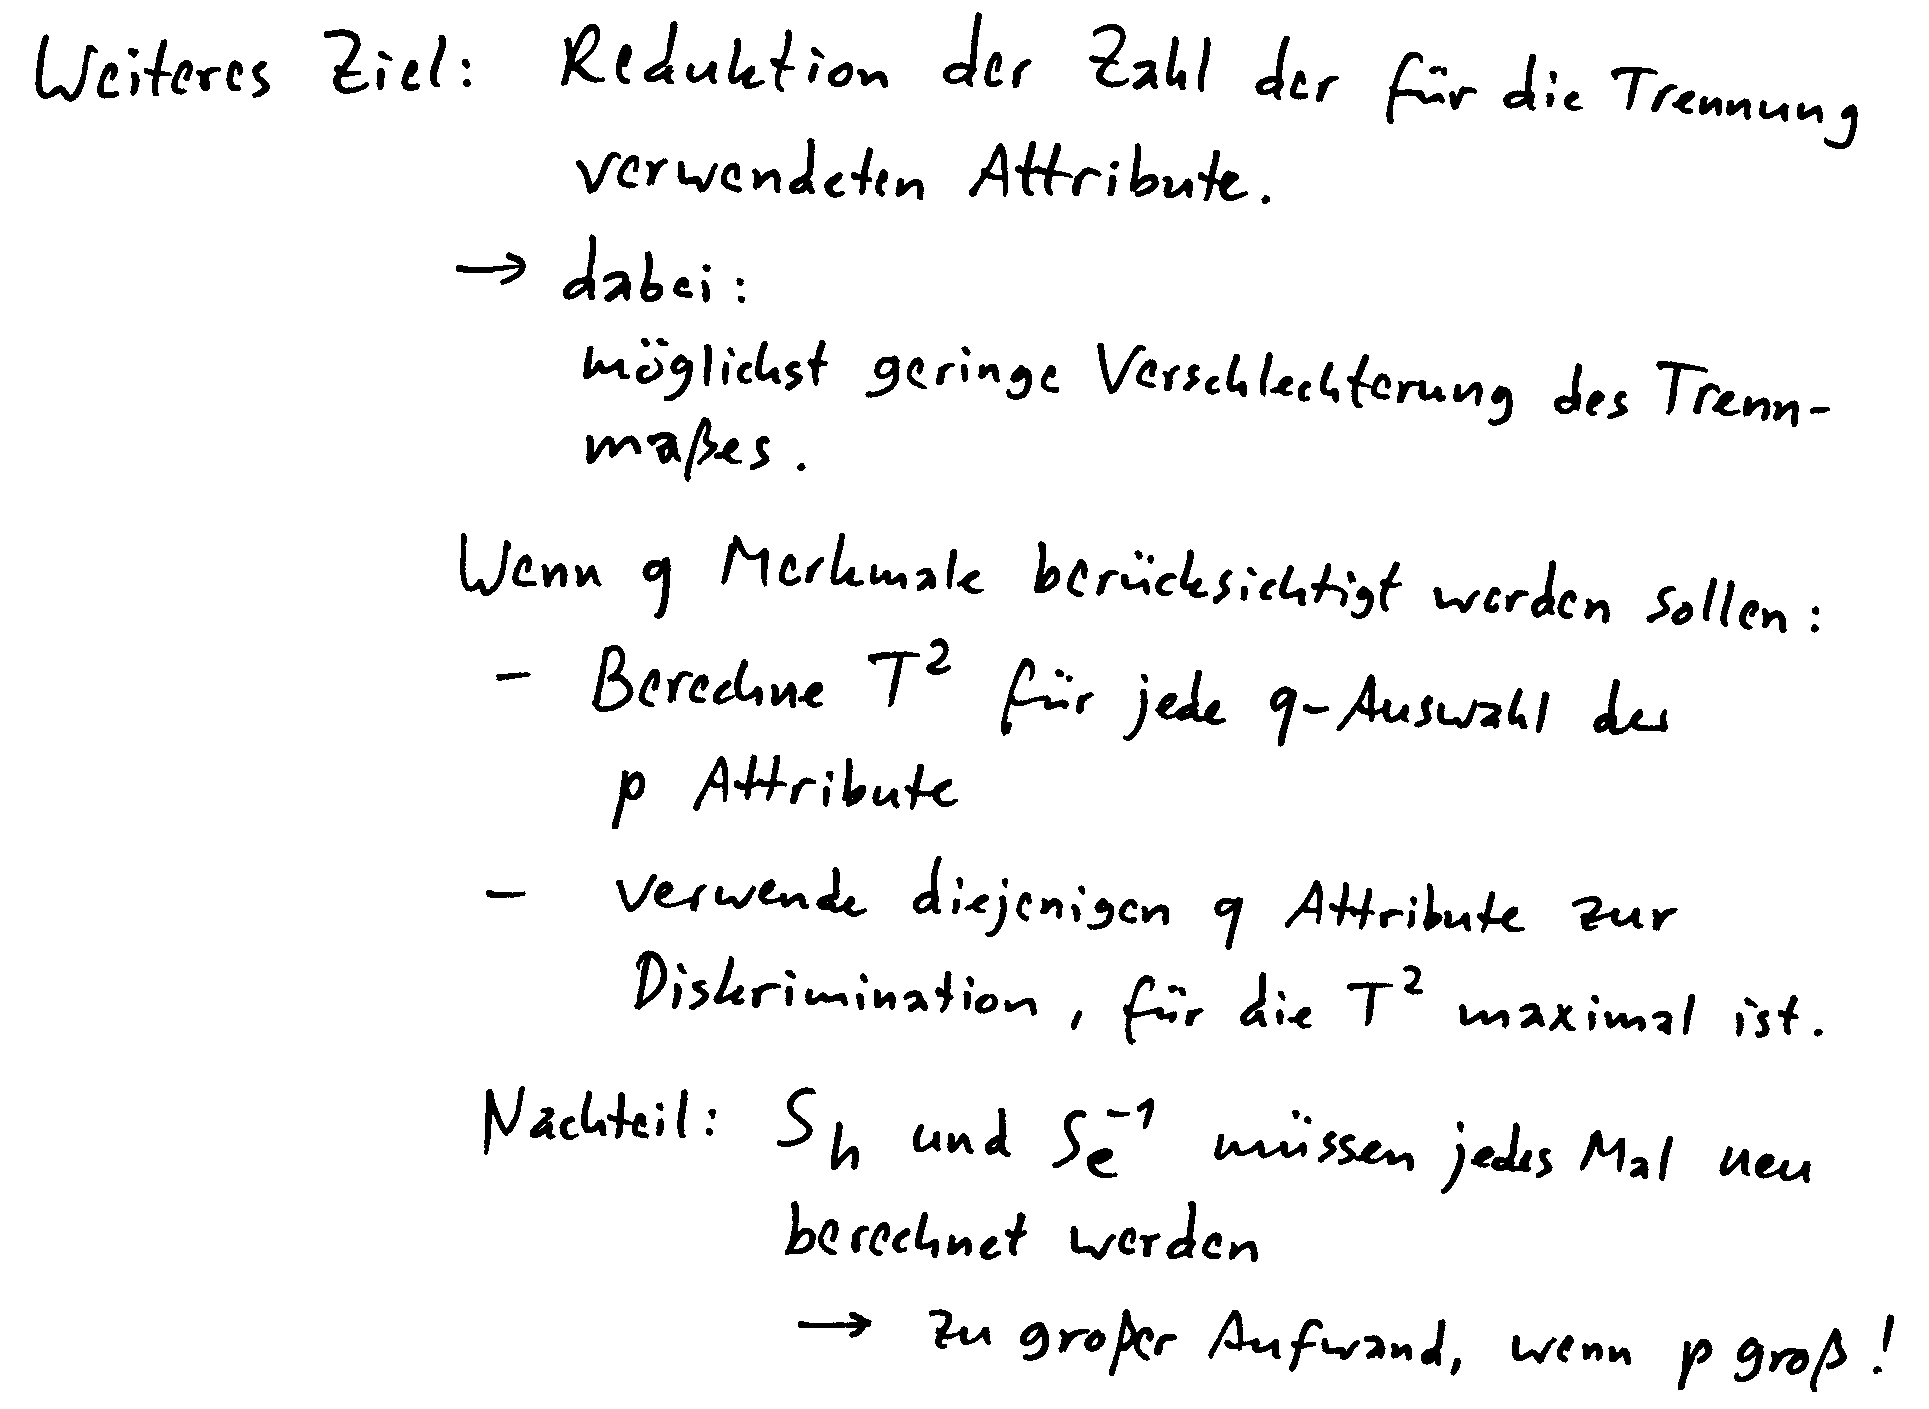 Weiteres Ziel: Reduktion der Zahl der für die Trennung
verwendeten Attribute.
→ dabei:
möglichst geringe Verschlechterung des Trenn-
maßes.
Wenn q Merkmale berücksichtigt werden sollen:
- Berechne T² für jede q-Auswahl der
p Attribute
- verwende diejenigen q Attribute zur
Diskrimination, für die T² maximal ist.
Nachteil: S_h und S_e^-1 müssen jedes Mal neu
berechnet werden
→ zu großer Aufwand, wenn p groß!